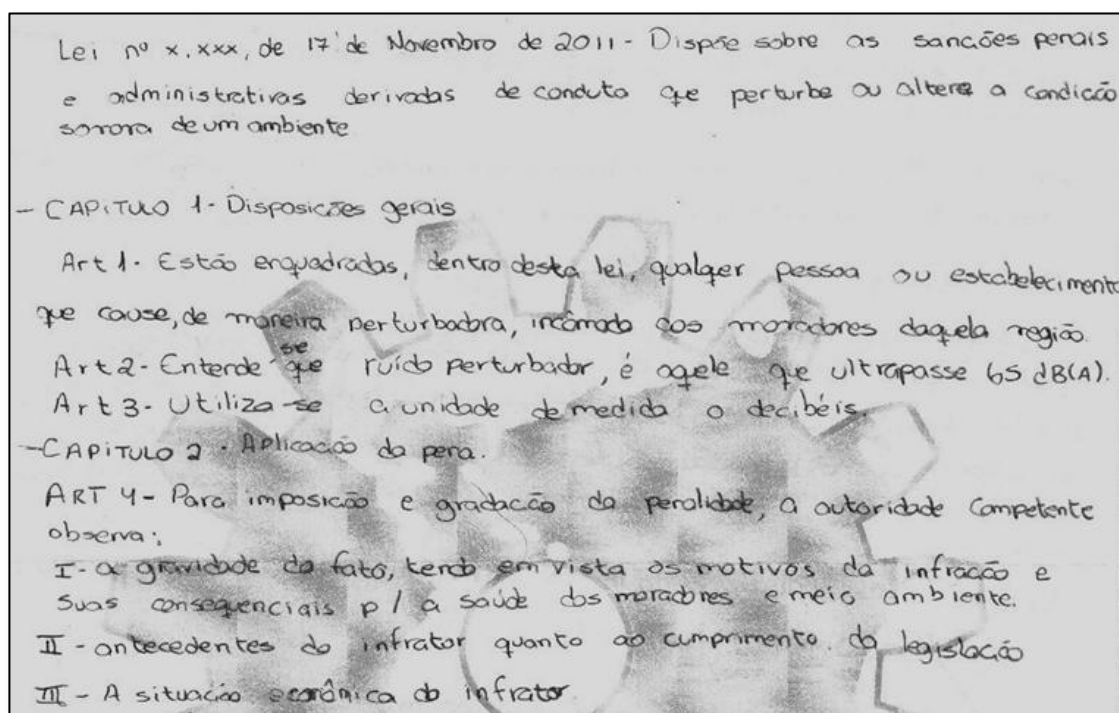 Lei nº x.xxx, de 17 de Novembro de 2011 - Dispõe sobre as sanções penais
e administrativas derivadas de conduta que perturbe ou altere a condição
sonora de um ambiente
- CAPÍTULO 1 - Disposições gerais
Art 1 - Estão enquadradas, dentro desta lei, qualqer pessoa ou estabelecimento
que cause, de maneira perturbadora, incômodo aos moradores daquela região.
Art 2 - Entende se que ruído perturbador, é aquele que ultrapasse 65 dB(A).
Art 3 - Utiliza-se a unidade de medida o decibéis.
- CAPÍTULO 2 - Aplicação da pena.
ART 4 - Para imposição e gradação da penalidade, a autoridade competente
observa:
I - a gravidade do fato, tendo em vista os motivos da infração e
suas consequenciais p/ a saúde dos moradores e meio ambiente.
II - antecedentes do infrator quanto ao cumprimento da legislação
III - A situação econômica do infrator.